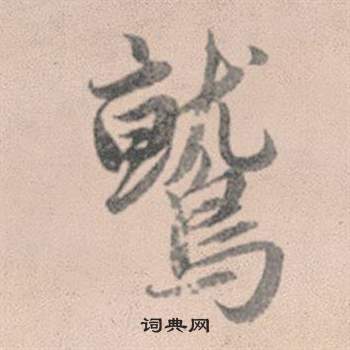 鷲
词典网